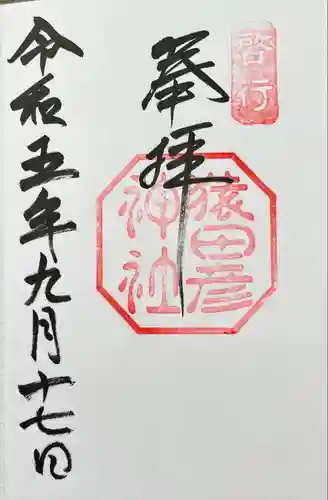 啓行
奉拝
猿田彦
神社
令和五年九月十七日